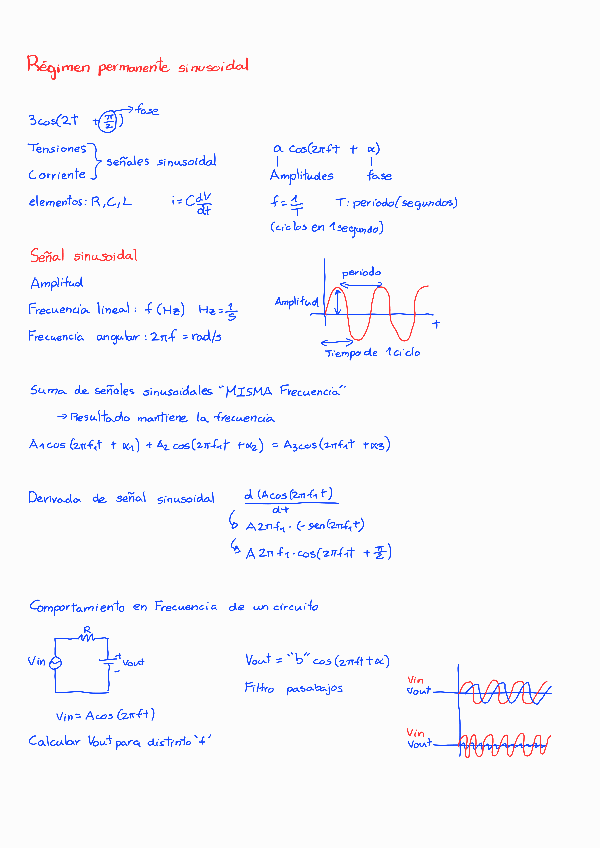 Régimen permanente sinusoidal
3cos(2t + π/2) → fase
Tensiones
Corriente
señales sinusoidal
a cos(2πft + α)
Amplitudes fase
elementos: R, C, L i = C dV/dt
f = 1/T T: período (segundos)
(ciclos en 1 segundo)
Señal sinusoidal
Amplitud
Frecuencia lineal: f (Hz) Hz = 1/s
Frecuencia angular: 2πf = rad/s
periodo
Amplitud
t
Tiempo de 1 ciclo
Suma de señales sinusoidales "MISMA Frecuencia"
→ Resultado mantiene la frecuencia
A1cos (2πf1t + α1) + A2 cos(2πf1t + α2) = A3cos(2πf1t + α3)
Derivada de señal sinusoidal d (Acos(2πf1t)/dt
A2πf1 · (-sen(2πf1t)
A 2πf1 · cos(2πf1t + π/2)
Comportamiento en Frecuencia de un circuito
R
Vin + Vout -
Vin = Acos (2πft)
Calcular Vout para distinto 'f'
Vout = "b" cos(2πft+α)
Filtro pasabajos
Vin
Vout
Vin
Vout